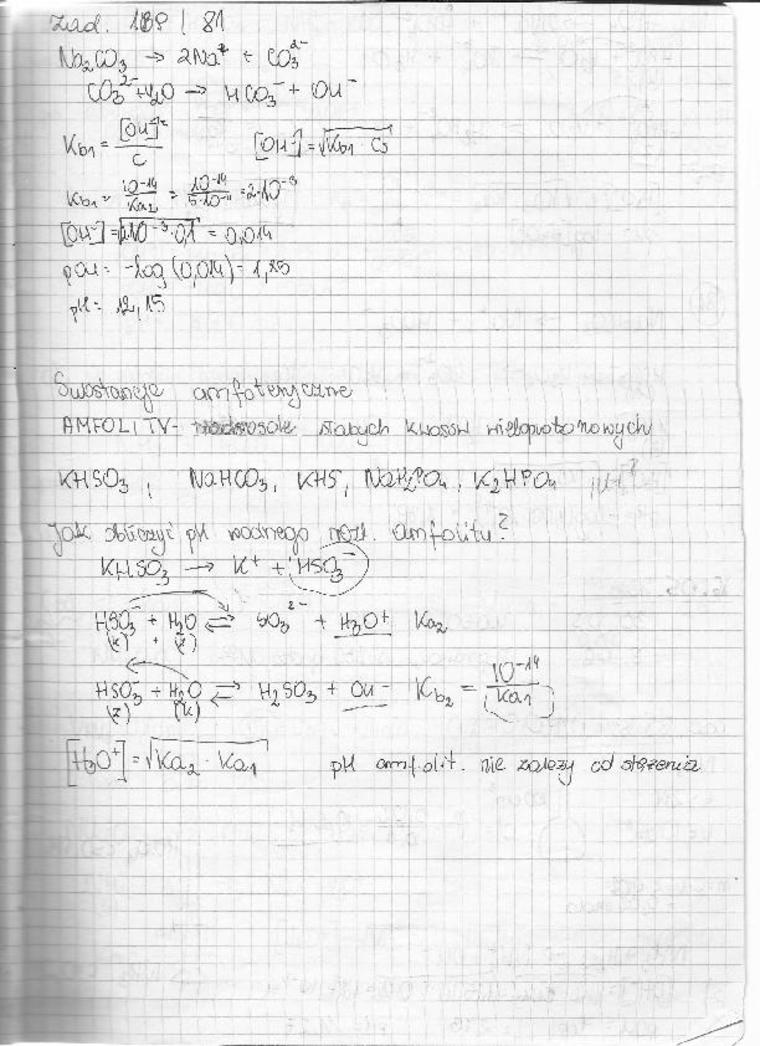 Zad. 189 / 81
Na₂CO₃ → 2Na⁺ + CO₃²⁻
CO₃²⁻ + H₂O → HCO₃⁻ + OH⁻
Kb₁ = [OH⁻]² / C [OH⁻] = √(Kb₁ · Cs)
Kb₁ = 10⁻¹⁴ / Ka₂ = 10⁻¹⁴ / 5·10⁻¹¹ = 2·10⁻³
[OH⁻] = √(2·10⁻³·0,1) = 0,014
pOH = -log (0,014) = 1,85
pH = 12,15
Substancje amfoteryczne
AMFOLITY - słabych kwasów wieloprotonowych
KHSO₃, NaHCO₃, KHS, NaH₂PO₄, K₂HPO₄
Jak obliczyć pH wodnego rozt. amfolitu?
KHSO₃ → K⁺ + HSO₃⁻
HSO₃⁻ + H₂O ⇌ SO₃²⁻ + H₃O⁺ Ka₂
(k) + (z)
HSO₃⁻ + H₂O ⇌ H₂SO₃ + OH⁻ Kb₂ = 10⁻¹⁴ / Ka₁
(z) (k)
[H₃O⁺] = √(Ka₂ · Ka₁) pH amfolit. nie zależy od stężenia